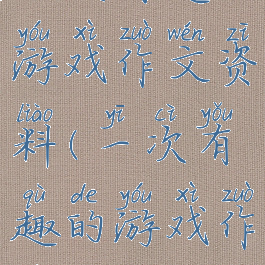 yóu xì zuò wén zī
游戏作文资
liào yī cì yǒu
料(一次有
qù de yóu xì zuò
趣的游戏作